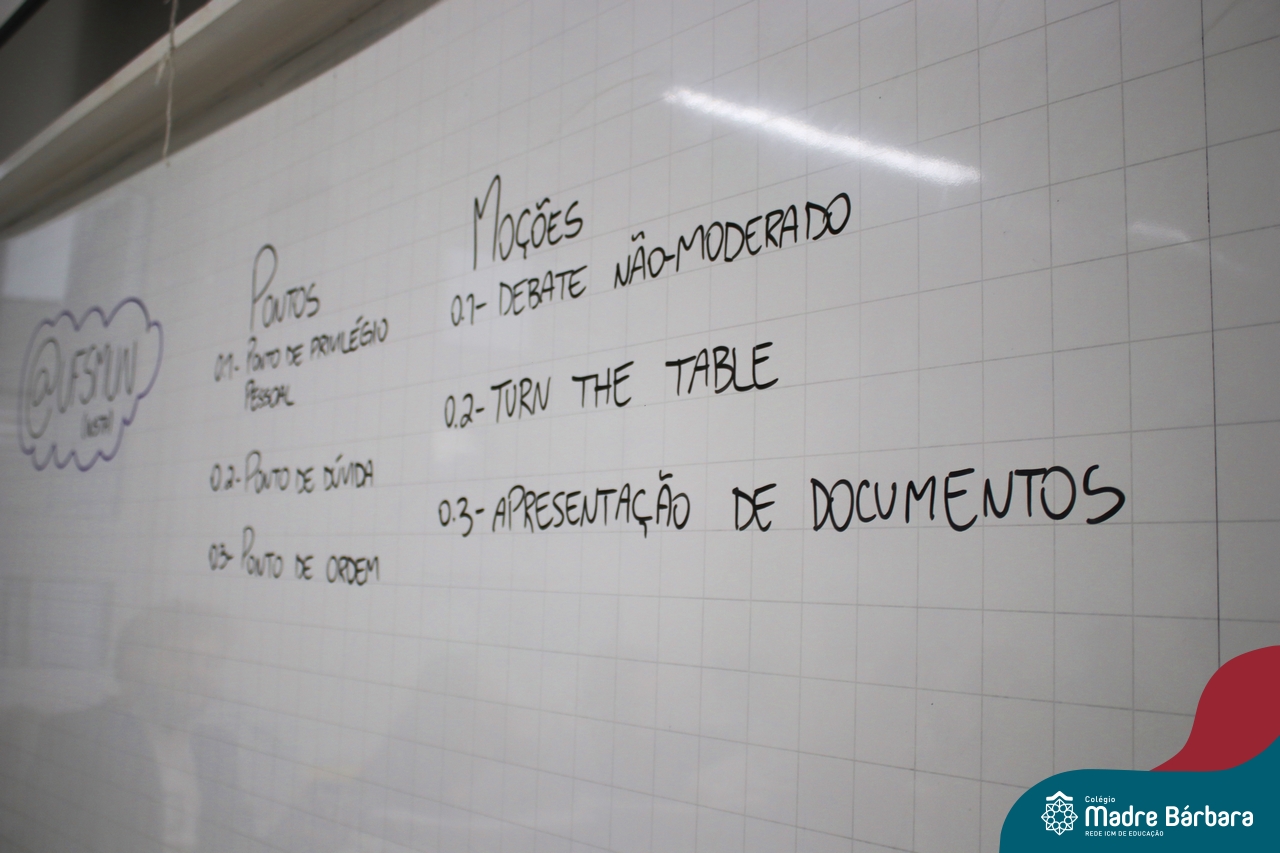 @UFSMUN
(INSTA)
PONTOS
0.1- PONTO DE PRIVILÉGIO
PESSOAL
0.2- PONTO DE DÚVIDA
0.3- PONTO DE ORDEM
MOÇÕES
0.1- DEBATE NÃO-MODERADO
0.2- TURN THE TABLE
0.3- APRESENTAÇÃO DE DOCUMENTOS
Colégio
Madre Bárbara
REDE ICM DE EDUCAÇÃO